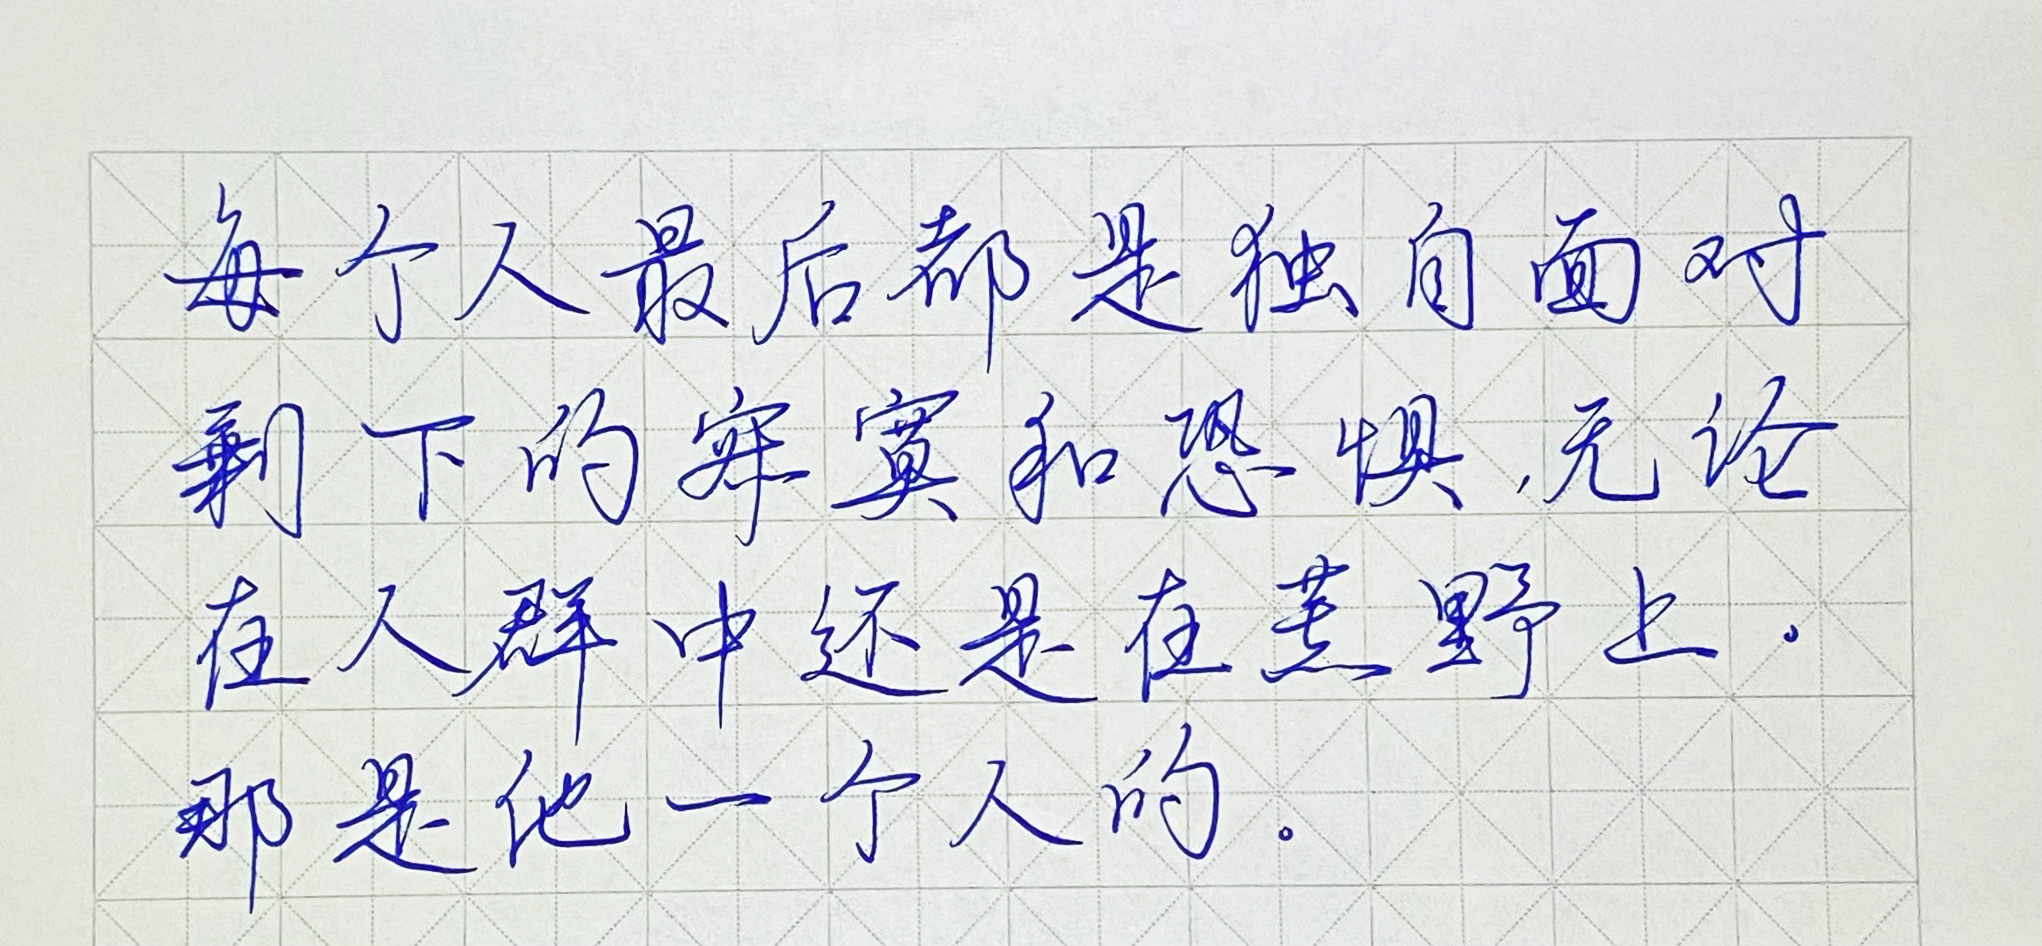 每个人最后都是独自面对
剩下的寂寞和恐惧,无论
在人群中还是在荒野上。
那是他一个人的。